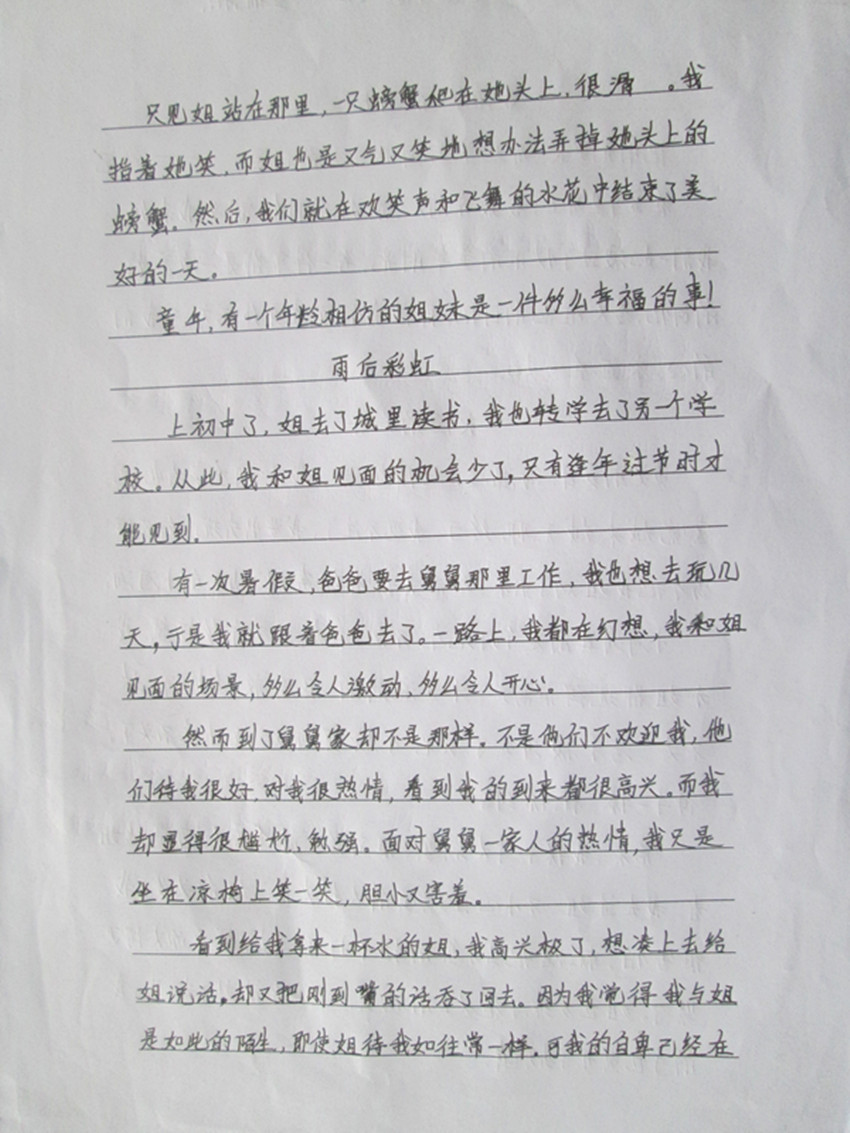 只见姐站在那里，一只螃蟹爬在她头上，很滑 。我
指着她笑，而姐也是又气又笑地想办法弄掉她头上的
螃蟹。然后，我们就在欢笑声和飞舞的水花中结束了美
好的一天。
童年，有一个年龄相仿的姐妹是一件多么幸福的事！
雨后彩虹
上初中了，姐去了城里读书，我也转学去了另一个学
校。从此，我和姐见面的机会少了，只有逢年过节时才
能见到。
有一次暑假，爸爸要去舅舅那里工作，我也想去玩几
天，于是我就跟着爸爸去了。一路上，我都在幻想，我和姐
见面的场景，多么令人激动，多么令人开心。
然而到了舅舅家却不是那样。不是他们不欢迎我，他
们待我很好，对我很热情，看到我的到来都很高兴。而我
却显得很尴尬、勉强。面对舅舅一家人的热情，我只是
坐在凉椅上笑一笑，胆小又害羞。
看到给我拿来一杯水的姐，我高兴极了，想凑上去给
姐说话。却又把刚到嘴的话吞了回去。因为我觉得我与姐
是如此的陌生，即使姐待我如往常一样。可我的自卑已经在